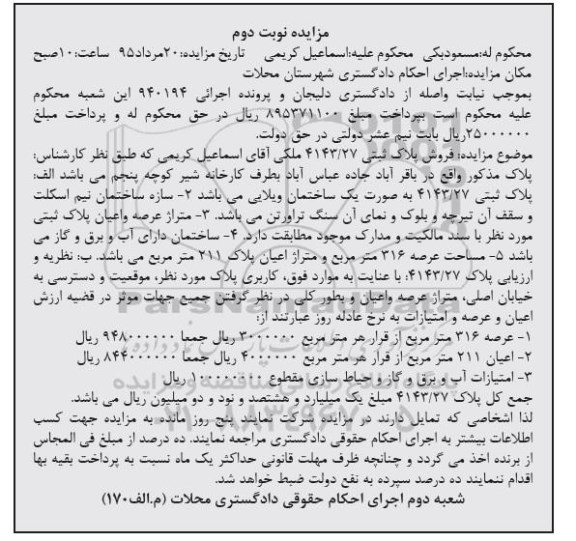 مزایده نوبت دوم
محکوم له:مسعودبکی محکوم علیه:اسماعیل کریمی تاریخ مزایده:۲۰مرداد۹۵ ساعت:۱۰صبح
مکان مزایده:اجرای احکام دادگستری شهرستان محلات
بموجب نیابت واصله از دادگستری دلیجان و پرونده اجرائی ۹۴۰۱۹۴ این شعبه محکوم
علیه محکوم است بپرداخت مبلغ ۸۹۵۳۷۱۱۰۰ ریال در حق محکوم له و پرداخت مبلغ
۲۵۰۰۰۰۰۰ریال بابت نیم عشر دولتی در حق دولت.
موضوع مزایده: فروش پلاک ثبتی ۴۱۴۳/۲۷ ملکی آقای اسماعیل کریمی که طبق نظر کارشناس:
پلاک مذکور واقع در باقر آباد جاده عباس آباد بطرف کارخانه شیر کوچه پنجم می باشد الف:
پلاک ثبتی ۴۱۴۳/۲۷ به صورت یک ساختمان ویلایی می باشد ۲- سازه ساختمان نیم اسکلت
و سقف آن تیرچه و بلوک و نمای آن سنگ تراورتن می باشد. ۳- متراژ عرصه واعیان پلاک ثبتی
مورد نظر با سند مالکیت و مدارک موجود مطابقت دارد. ۴- ساختمان دارای آب و برق و گاز می
باشد ۵- مساحت عرصه ۳۱۶ متر مربع و متراژ اعیان پلاک ۲۱۱ متر مربع می باشد. ب: نظریه و
ارزیابی پلاک ۴۱۴۳/۲۷: با عنایت به موارد فوق، کاربری پلاک مورد نظر، موقعیت و دسترسی به
خیابان اصلی، متراژ عرصه واعیان و بطور کلی در نظر گرفتن جمیع جهات موثر در قضیه ارزش
اعیان و عرصه و امتیازات به نرخ عادله روز عبارتند از:
۱- عرصه ۳۱۶ متر مربع از قرار هر متر مربع ۳۰۰۰۰۰۰ ریال جمعا ۹۴۸۰۰۰۰۰۰ ریال
۲- اعیان ۲۱۱ متر مربع از قرار هر متر مربع ۴۰۰۰۰۰۰ ریال جمعا ۸۴۴۰۰۰۰۰۰ ریال
۳- امتیازات آب و برق و گاز و حیاط سازی مقطوع ۱۰۰۰۰۰۰۰۰ ریال
جمع کل پلاک ۴۱۴۳/۲۷ مبلغ یک میلیارد و هشتصد و نود و دو میلیون ریال می باشد.
لذا اشخاصی که تمایل دارند در مزایده شرکت نمایند پنج روز مانده به مزایده جهت کسب
اطلاعات بیشتر به اجرای احکام حقوقی دادگستری مراجعه نمایند. ده درصد از مبلغ فی المجلس
از برنده اخذ می گردد و چنانچه ظرف مهلت قانونی حداکثر یک ماه نسبت به پرداخت بقیه بها
اقدام ننمایند ده درصد سپرده به نفع دولت ضبط خواهد شد.
شعبه دوم اجرای احکام حقوقی دادگستری محلات (م.الف۱۷۰)